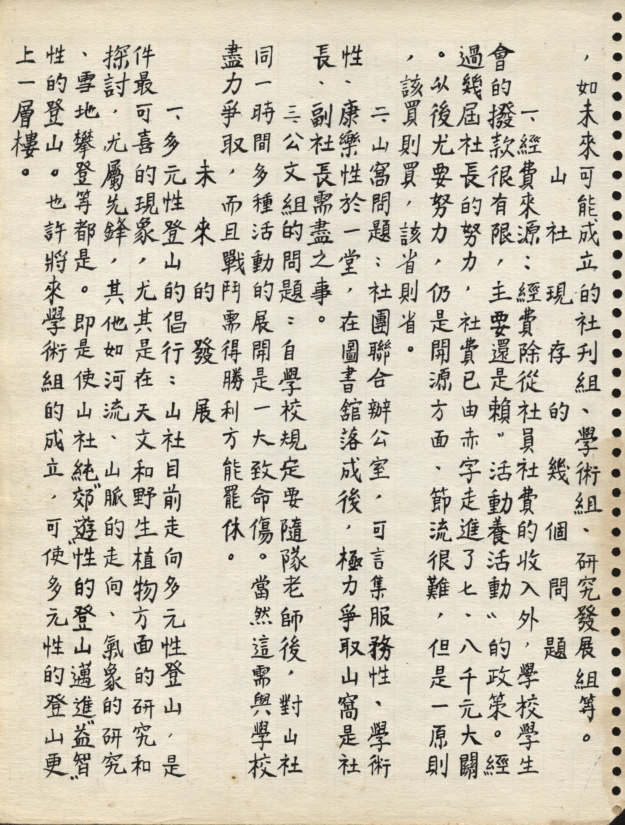 ，如未來可能成立的社刊組、學術組、研究發展組等。
山社現存的幾個問題
一、經費來源：經費除從社員社費的收入外，學校學生
會的撥款很有限，主要還是賴“活動養活動”的政策。經
過幾屆社長的努力，社費已由赤字走進了七、八千元大關
。以後尤要努力，仍是開源方面、節流很難，但是一原則
，該買則買，該省則省。
二、山窩問題：社團聯合辦公室，可言集服務性、學術
性、康樂性於一堂，在圖書舘落成後，極力爭取山窩是社
長、副社長需盡之事。
三、公文組的問題：自學校規定要隨隊老師後，對山社
同一時間多種活動的展開是一大致命傷。當然這需與學校
盡力爭取，而且戰鬥需得勝利方能罷休。
未來的發展
一、多元性登山的倡行：山社目前走向多元性登山，是
件最可喜的現象，尤其是在天文和野生植物方面的研究和
探討，尤屬先鋒，其他如河流、山脈的走向、氣象的研究
、雪地攀登等都是。即是使山社純“郊遊”性的登山邁進“益智”
性的登山。也許將來學術組的成立，可使多元性的登山更
上一層樓。